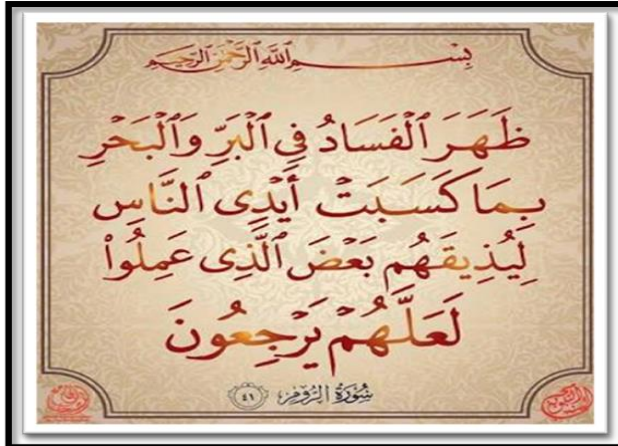 بِسْمِ اللَّهِ الرَّحْمَنِ الرَّحِيمِ
ظَهَرَ ٱلْفَسَادُ فِى ٱلْبَرِّ وَٱلْبَحْرِ
بِمَا كَسَبَتْ أَيْدِى ٱلنَّاسِ
لِيُذِيقَهُم بَعْضَ ٱلَّذِى عَمِلُوا۟
لَعَلَّهُمْ يَرْجِعُونَ
سُورَةُ الرُّومِ ٤١